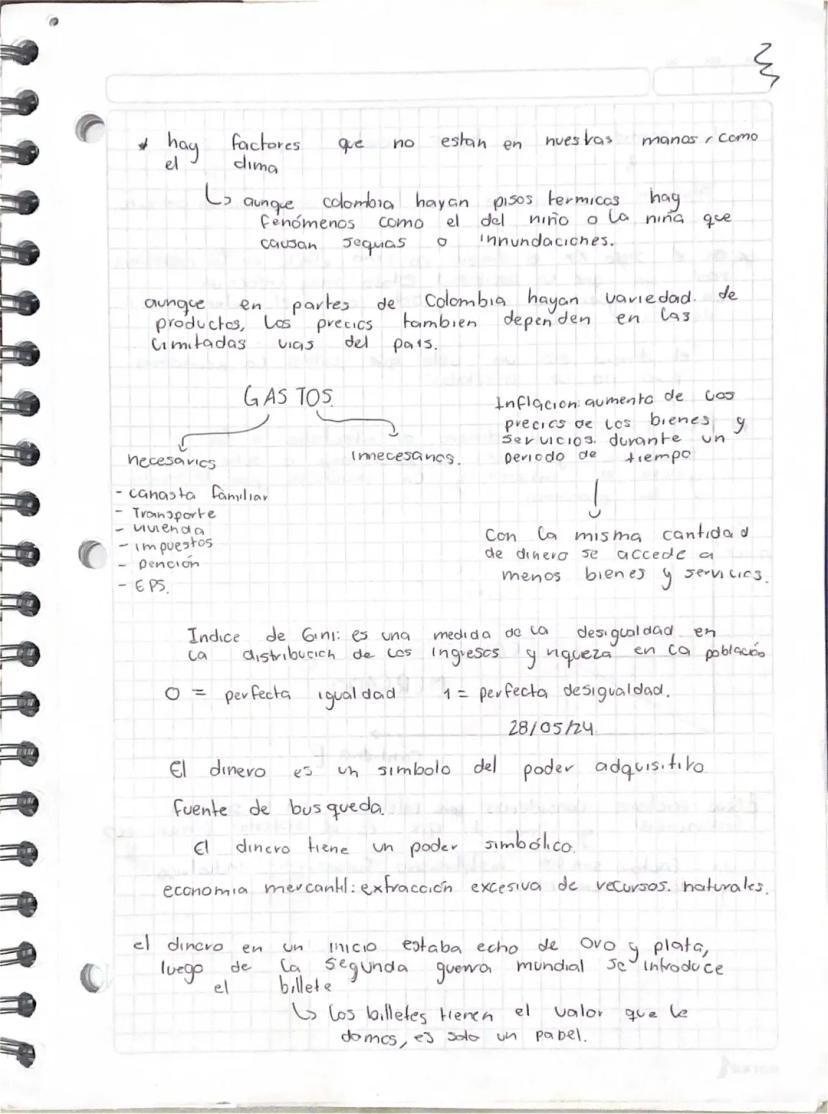 * hay factores que no estan en nuestras manos, como
el clima
↳ aunque colombia hayan pisos termicos hay
fenómenos como el del niño o la niña que
causan sequias o innundaciones.
aunque en partes de Colombia hayan variedad de
productos, los precios tambien dependen en las
limitadas vias del pais.
GASTOS
necesarios
innecesarios.
- canasta familiar
- Transporte
- vivienda
- impuestos
- pención
- EPS.
Inflacion: aumento de los
precios de los bienes y
servicios durante un
periodo de tiempo
Con la misma cantidad
de dinero se accede a
menos bienes y servicios.
Indice de Gini: es una medida de la desigualdad en
la distribución de los ingresos y riqueza en la población
0 = perfecta igualdad 1 = perfecta desigualdad.
28/05/24
El dinero es un simbolo del poder adquisitivo
fuente de busqueda.
El dinero tiene un poder simbólico.
economia mercantil: extracción excesiva de recursos naturales.
el dinero en un inicio estaba echo de oro y plata,
luego de la segunda guerra mundial se introduce
el billete
↳ los billetes tienen el valor que le
damos, es solo un papel.